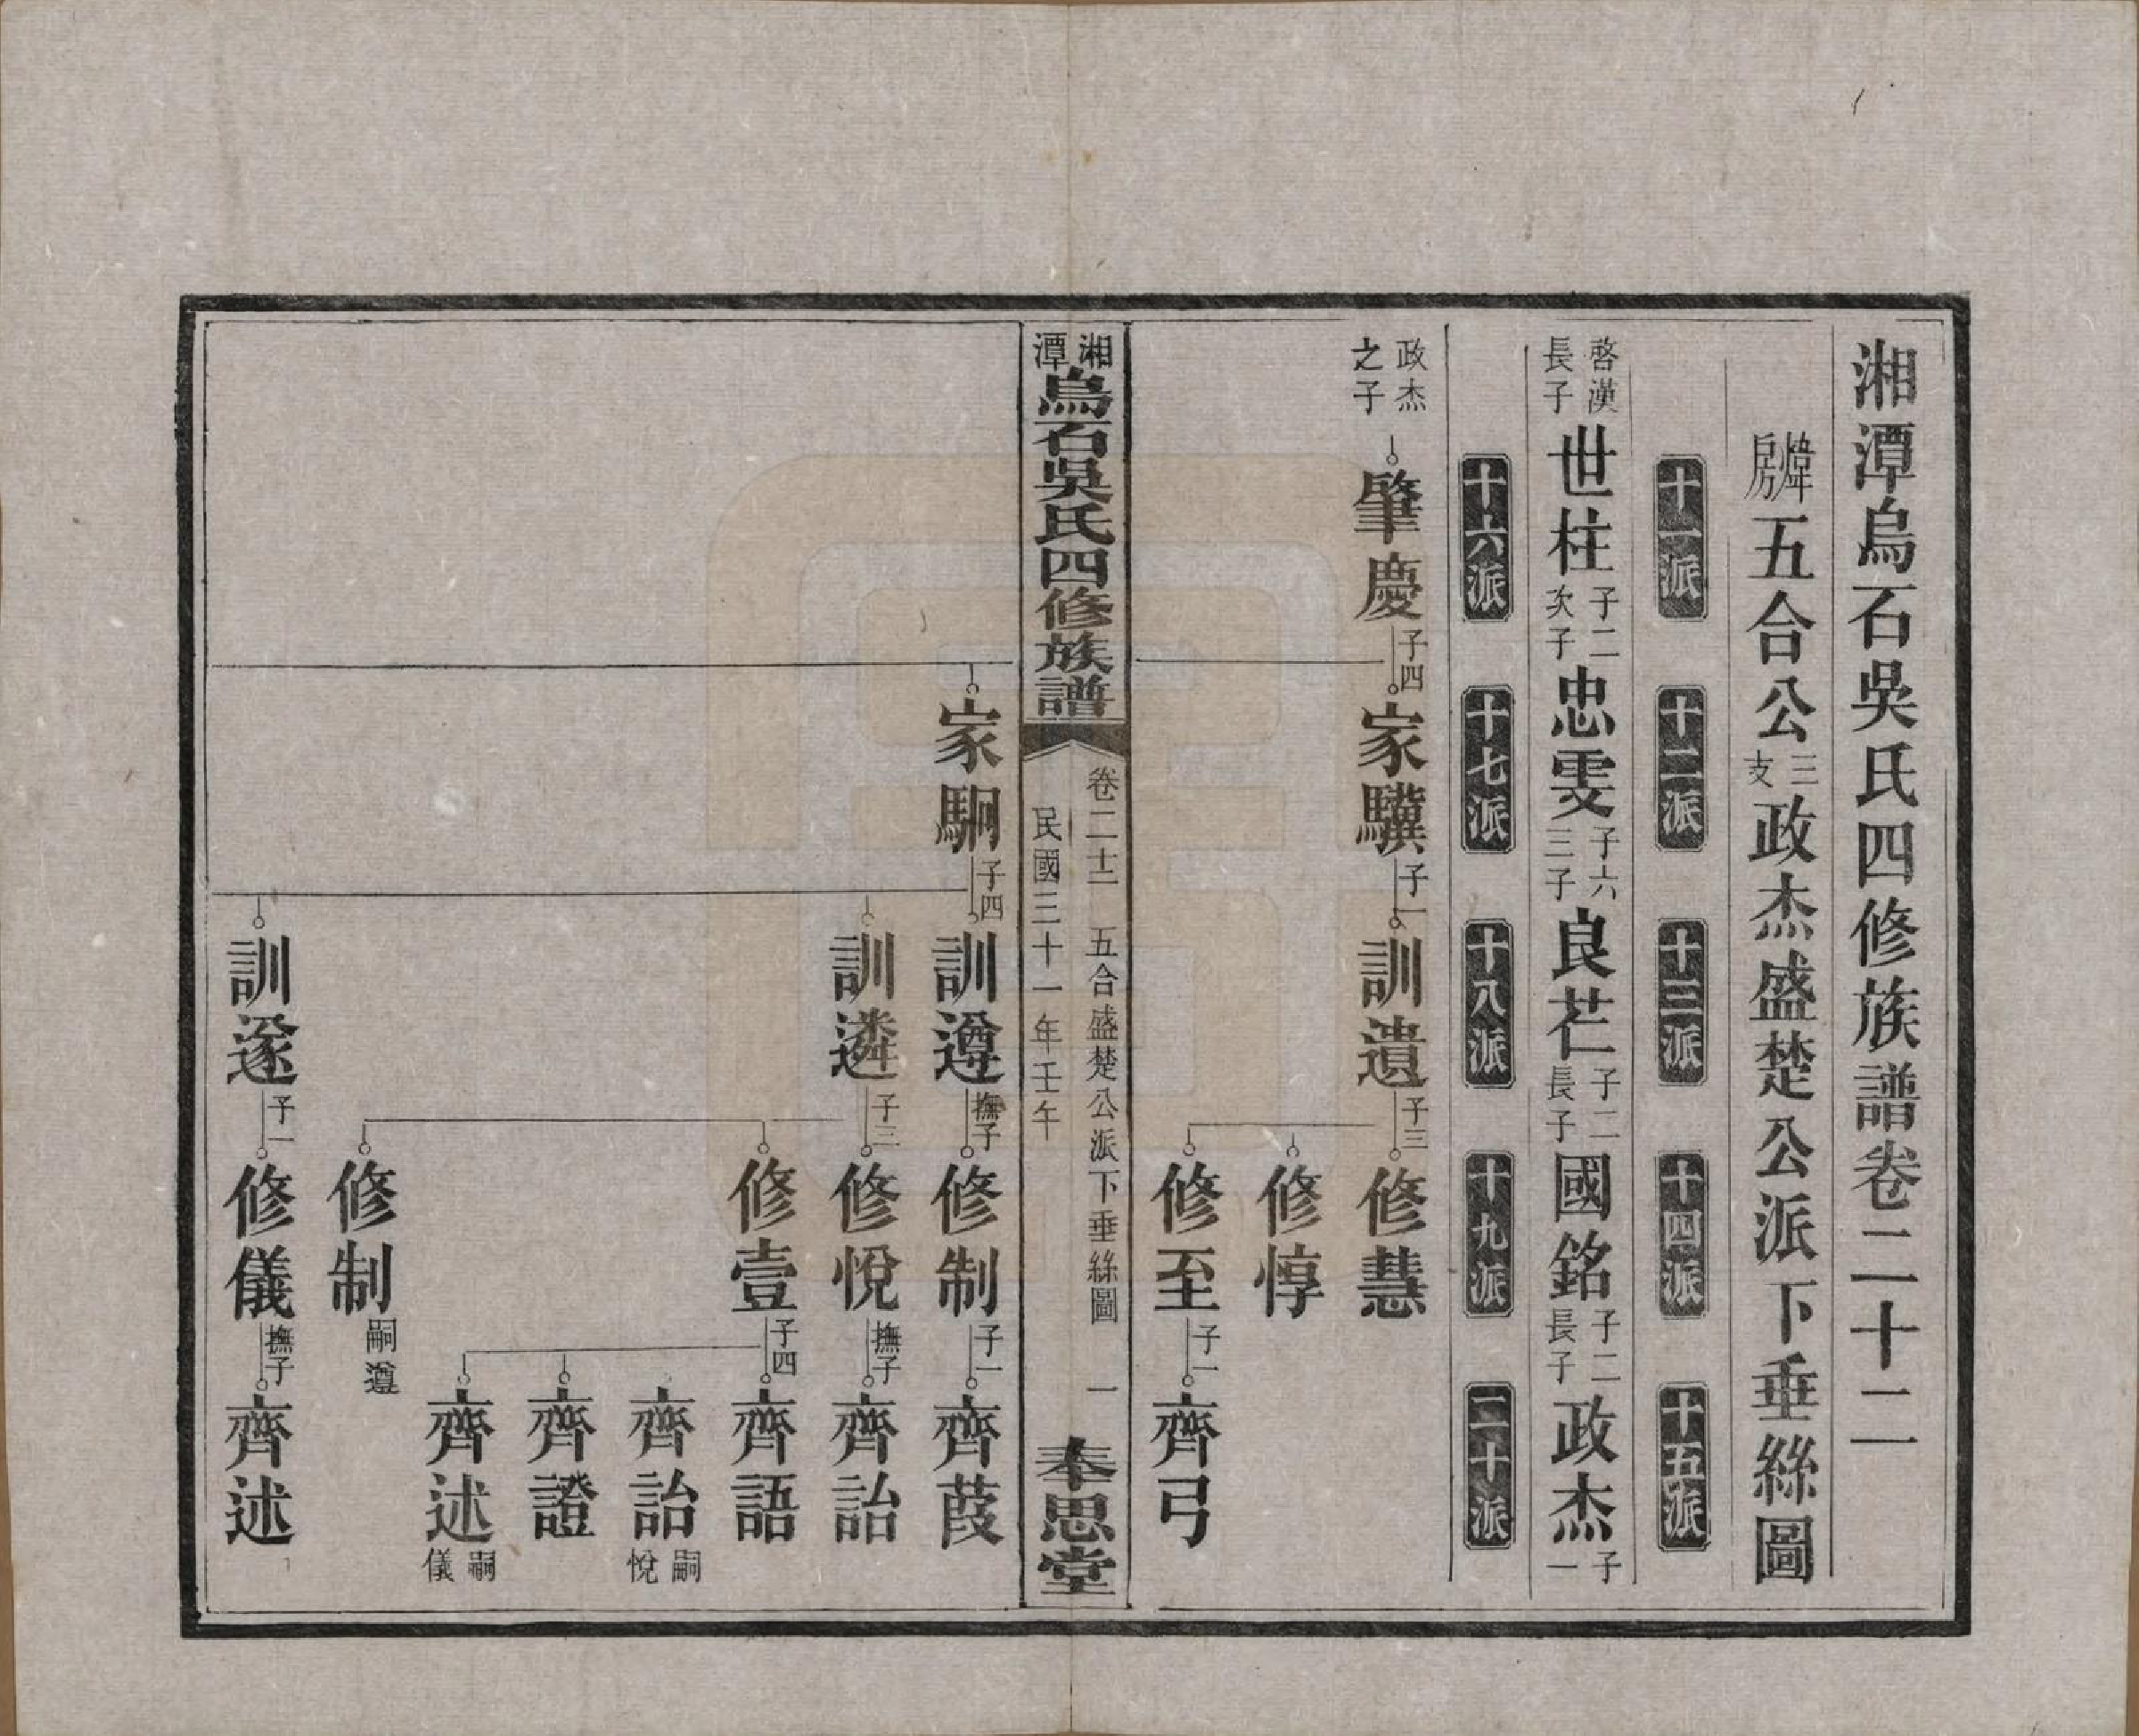 湘潭烏石吳氏四修族譜卷二十二
煒房五合公三支政杰盛楚公派下垂絲圖
十一派 十二派 十三派 十四派 十五派
啓漢長子世柱子二次子忠雯子六三子良芢子二長子國銘子二長子政杰子一
十六派 十七派 十八派 十九派 二十派
政杰之子 肇慶子四 家驥子一 訓遺子三 修慧
修惇
修至子一 齊弓
湘潭烏石吳氏四修族譜 卷二十二 五合盛楚公派下垂絲圖 一
民國三十一年壬午 奉思堂
家駉子四 訓遵撫子 修制子一 齊葭
訓遴子三 修悅撫子 齊詒
修壹子四 齊語
齊詒嗣悅
齊證
齊述嗣儀
修制嗣遵
訓邃子一 修儀撫子 齊述